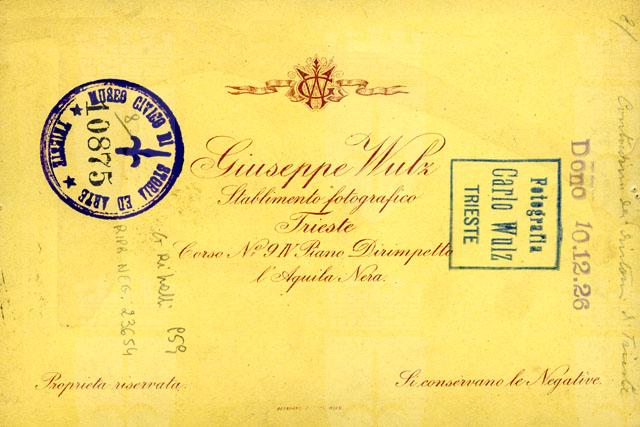 Giuseppe Wulz
Stabilimento fotografico
Trieste
Corso No. 9 IV Piano Dirimpetto
l'Aquila Nera.
Proprietà riservata.
Si conservano le Negative.
MUSEO CIVICO DI STORIA ED ARTE
TRIESTE
10875
Fotografia
Carlo Wulz
TRIESTE
Dono 10.12.26
RIPR. NEG. 23654
G. Rihelli P59